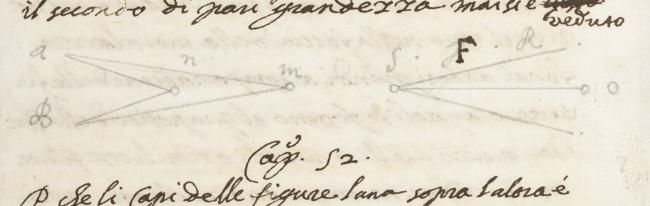 il secondo di pari grandezza mai si è
veduto
a n m S F R
B O
Cap. 52.
P che li Capi delle figure luna sopra lalora é